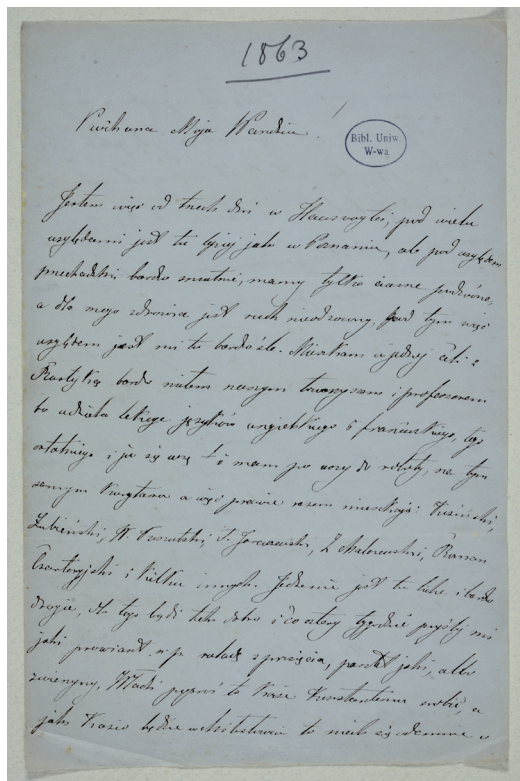 1863
Kochana Moja Wandziu!
Bibl. Uniw.
W-wa
Jestem więc od trzech dni w Hausvogtei, pod wielu
względami jest tu lepiej jak w Poznaniu, ale pod względem
przechadzki bardzo smutnie, mamy tylko ciasne podwórze,
a dla mego zdrowia jest ruch nieodzowny, pod tym więc
względem jest mi tu bardzo źle. Mieszkam w jednej Celi z
bardzo miłem naszym towarzyszem i profesorem
bo udziela lekcye języków angielskiego i francuskiego, tego
ostatniego i ja się uczę i mam po uszy do roboty, na tym
samym kurytarzu a więc prawie razem mieszkają:
Łubieński, W. Kosiński, Roman
Czartoryski i kilku innych. Jedzenie jest tu liche i bardzo
drogie, dla tego bądź tak dobra i co cztery tygodnie przyślij mi
jaki prowiant n.p. jaki, albo
zwierzyny, to każe Konstantemu zrobić, a
jak Kazio będzie to niech się w